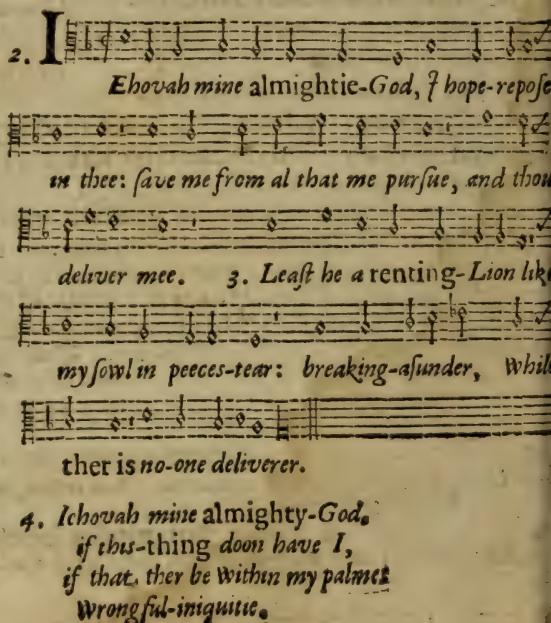 2. I
Ehovah mine almightie-God, I hope-repose
in thee: save me from al that me pursue, and thou
deliver mee. 3. Least he a renting-Lion like
my sowl in peeces-tear: breaking-asunder, While
ther is no-one deliverer.
4. Iehovah mine almighty-God.
if this-thing doon have I,
if that, ther be Within my palmes
Wrongful-iniquitie.